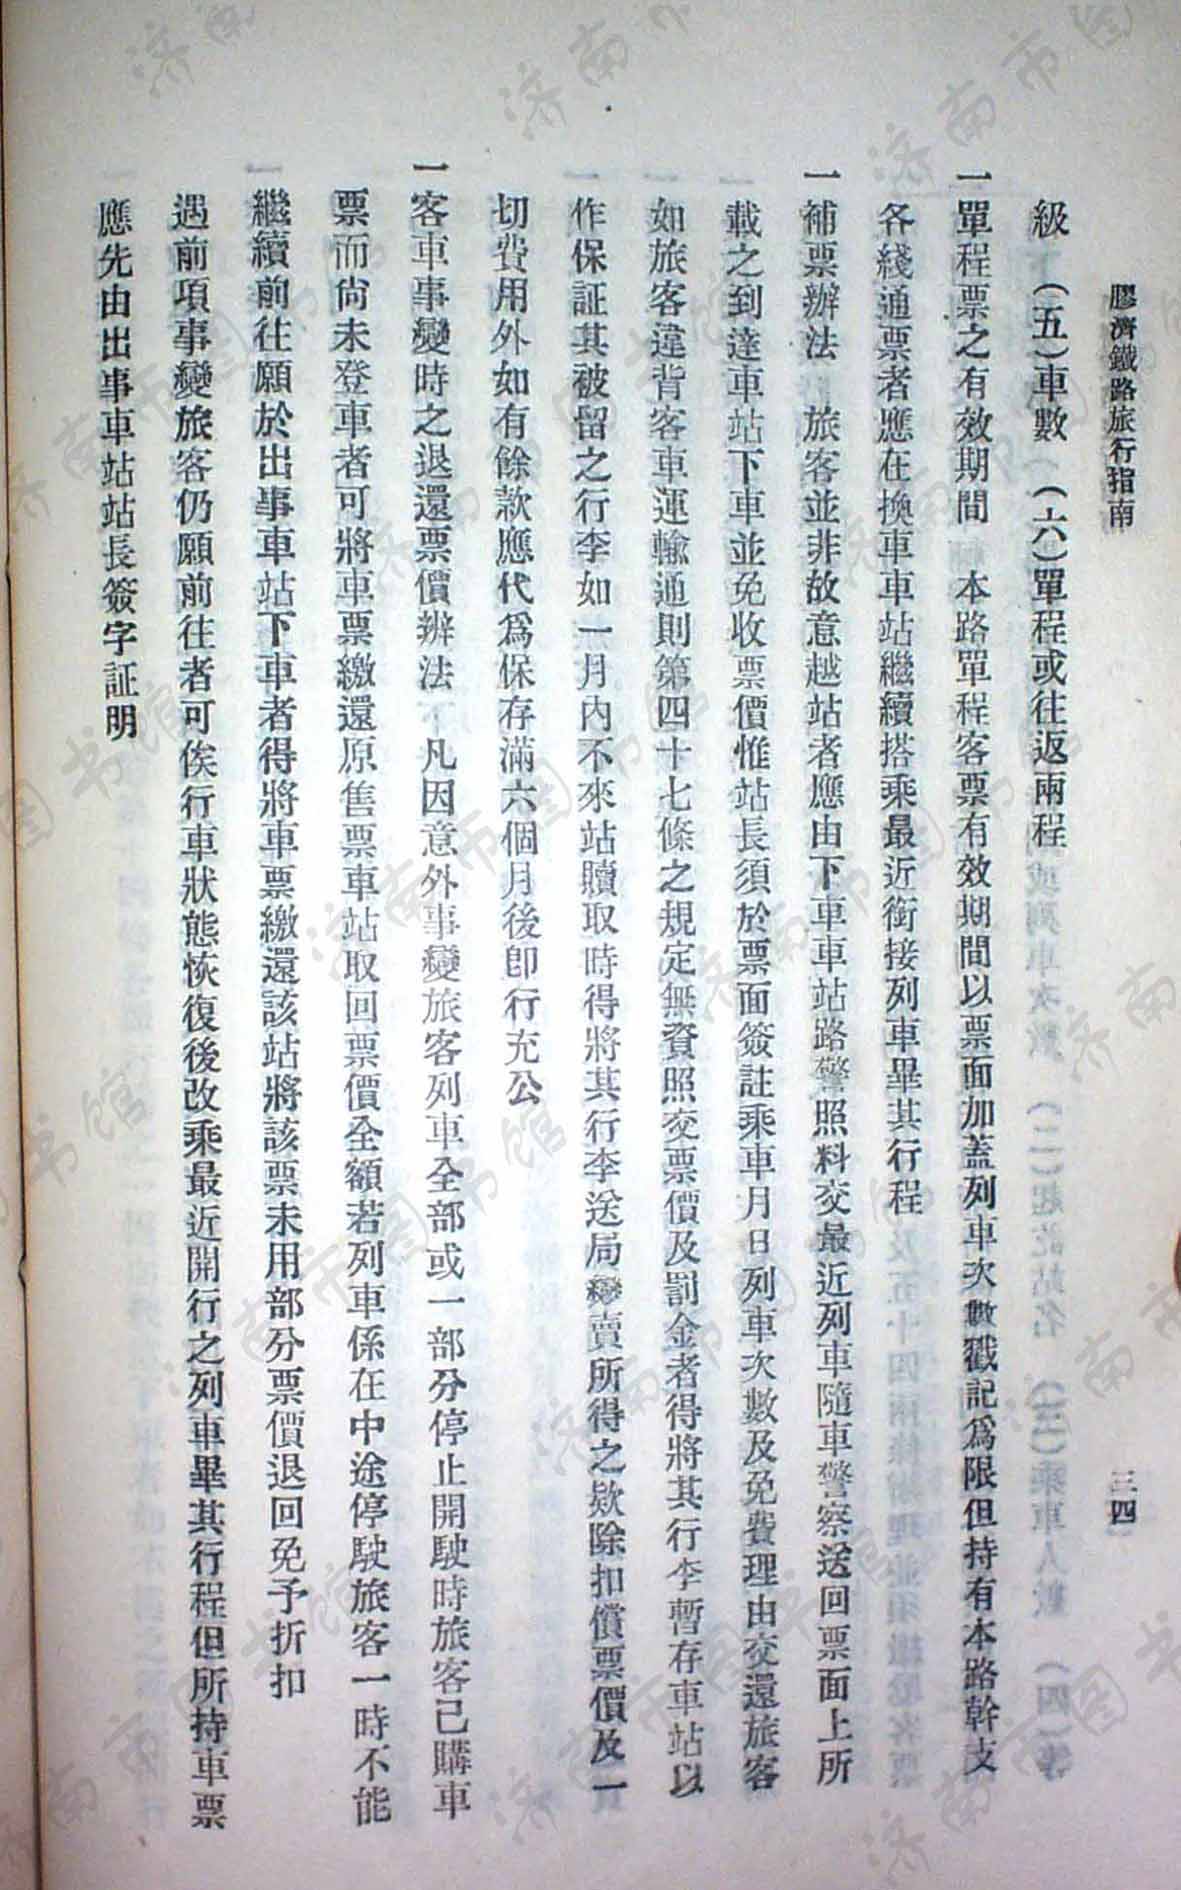 膠濟鐵路旅行指南
三四
級　(五)車數　(六)單程或往返兩程
一單程票之有效期間　本路單程客票有效期間以票面加蓋列車次數戳記爲限但持有本路幹支
各綫通票者應在換車車站繼續搭乘最近銜接列車畢其行程
一補票辦法　旅客並非故意越站者應由下車車站路警照料交最近列車隨車警察送回票面上所
載之到達車站下車並免收票價惟站長須於票面簽註乘車月日列車次數及免費理由交還旅客
如旅客違背客車運輸通則第四十七條之規定無資照交票價及罰金者得將其行李暫存車站以
作保証其被留之行李如一月內不來站贖取時得將其行李送局變賣所得之欵除扣償票價及一
切費用外如有餘款應代爲保存滿六個月後卽行充公
一客車事變時之退還票價辦法　凡因意外事變旅客列車全部或一部分停止開駛時旅客已購車
票而尙未登車者可將車票繳還原售票車站取回票價全額若列車係在中途停駛旅客一時不能
繼續前往願於出事車站下車者得將車票繳還該站將該票未用部分票價退回免予折扣
遇前項事變旅客仍願前往者可俟行車狀態恢復後改乘最近開行之列車畢其行程但所持車票
應先由出事車站站長簽字証明
济南市图书馆